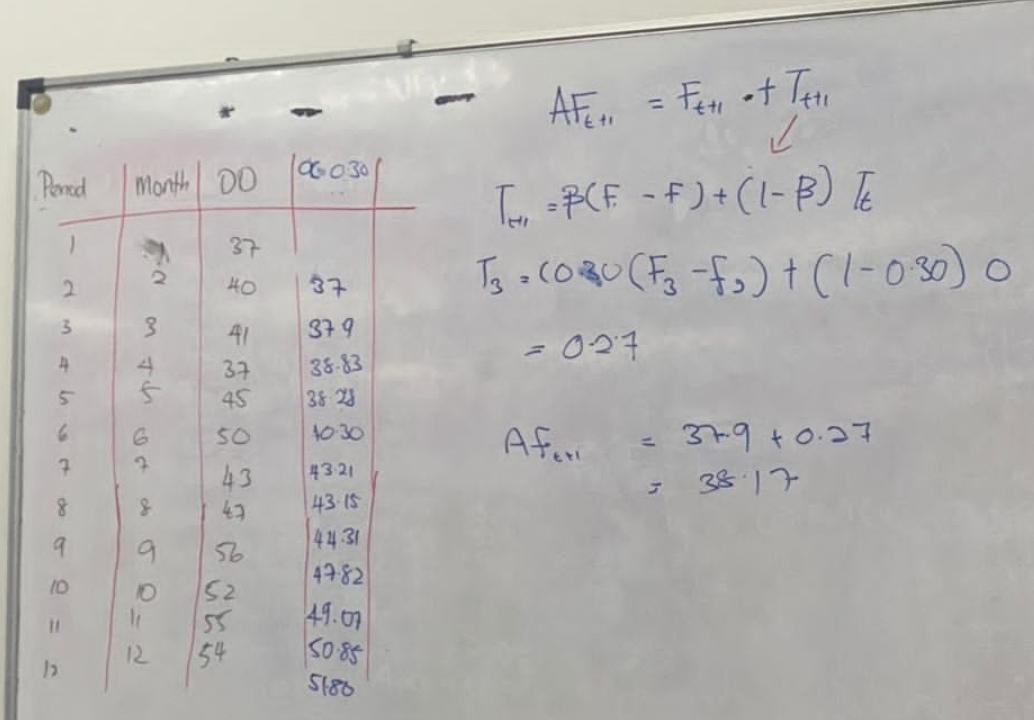 AFt+1 = Ft+1 + Tt+1
Period Month DO α=0.30
Tt+1 = β(F - F) + (1-β) Tt
1 37
T3 = (0.30 (F3 - F2) + (1-0.30) 0
2 2 40 37
3 3 41 37.9
= 0.27
4 4 37 38.83
5 5 45 38.28
6 6 50 40.30
AFt+1 = 37.9 + 0.27
7 7 43 43.21
= 38.17
8 8 47 43.15
9 9 56 44.31
10 10 52 47.82
11 11 55 49.07
12 12 54 50.85
51.80